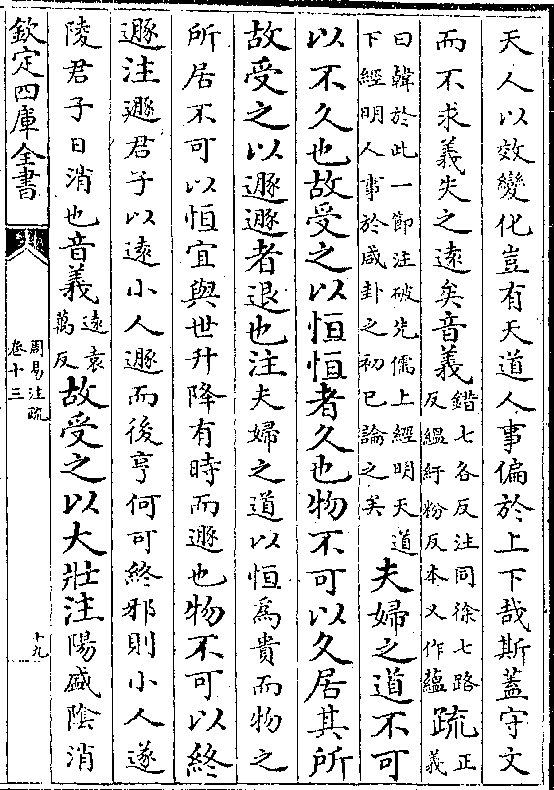 天人以效變化豈有天道人事偏於上下哉斯蓋守文
而不求義失之遠矣音義錯七各反注同徐七路反縕紆粉反本又作蘊疏正義
曰韓於此一節注破先儒上經明天道下經明人事於咸卦之初已論之矣夫婦之道不可
以不久也故受之以恒恒者久也物不可以久居其所
故受之以遯遯者退也注夫婦之道以恒為貴而物之
所居不可以恒宜與世升降有時而遯也物不可以終
遯注遯君子以遠小人遯而後亨何可終邪則小人遂
陵君子日消也音義遠袁萬反故受之以大壯注陽盛陰消
欽定四庫全書
周易注疏
卷十三
十九